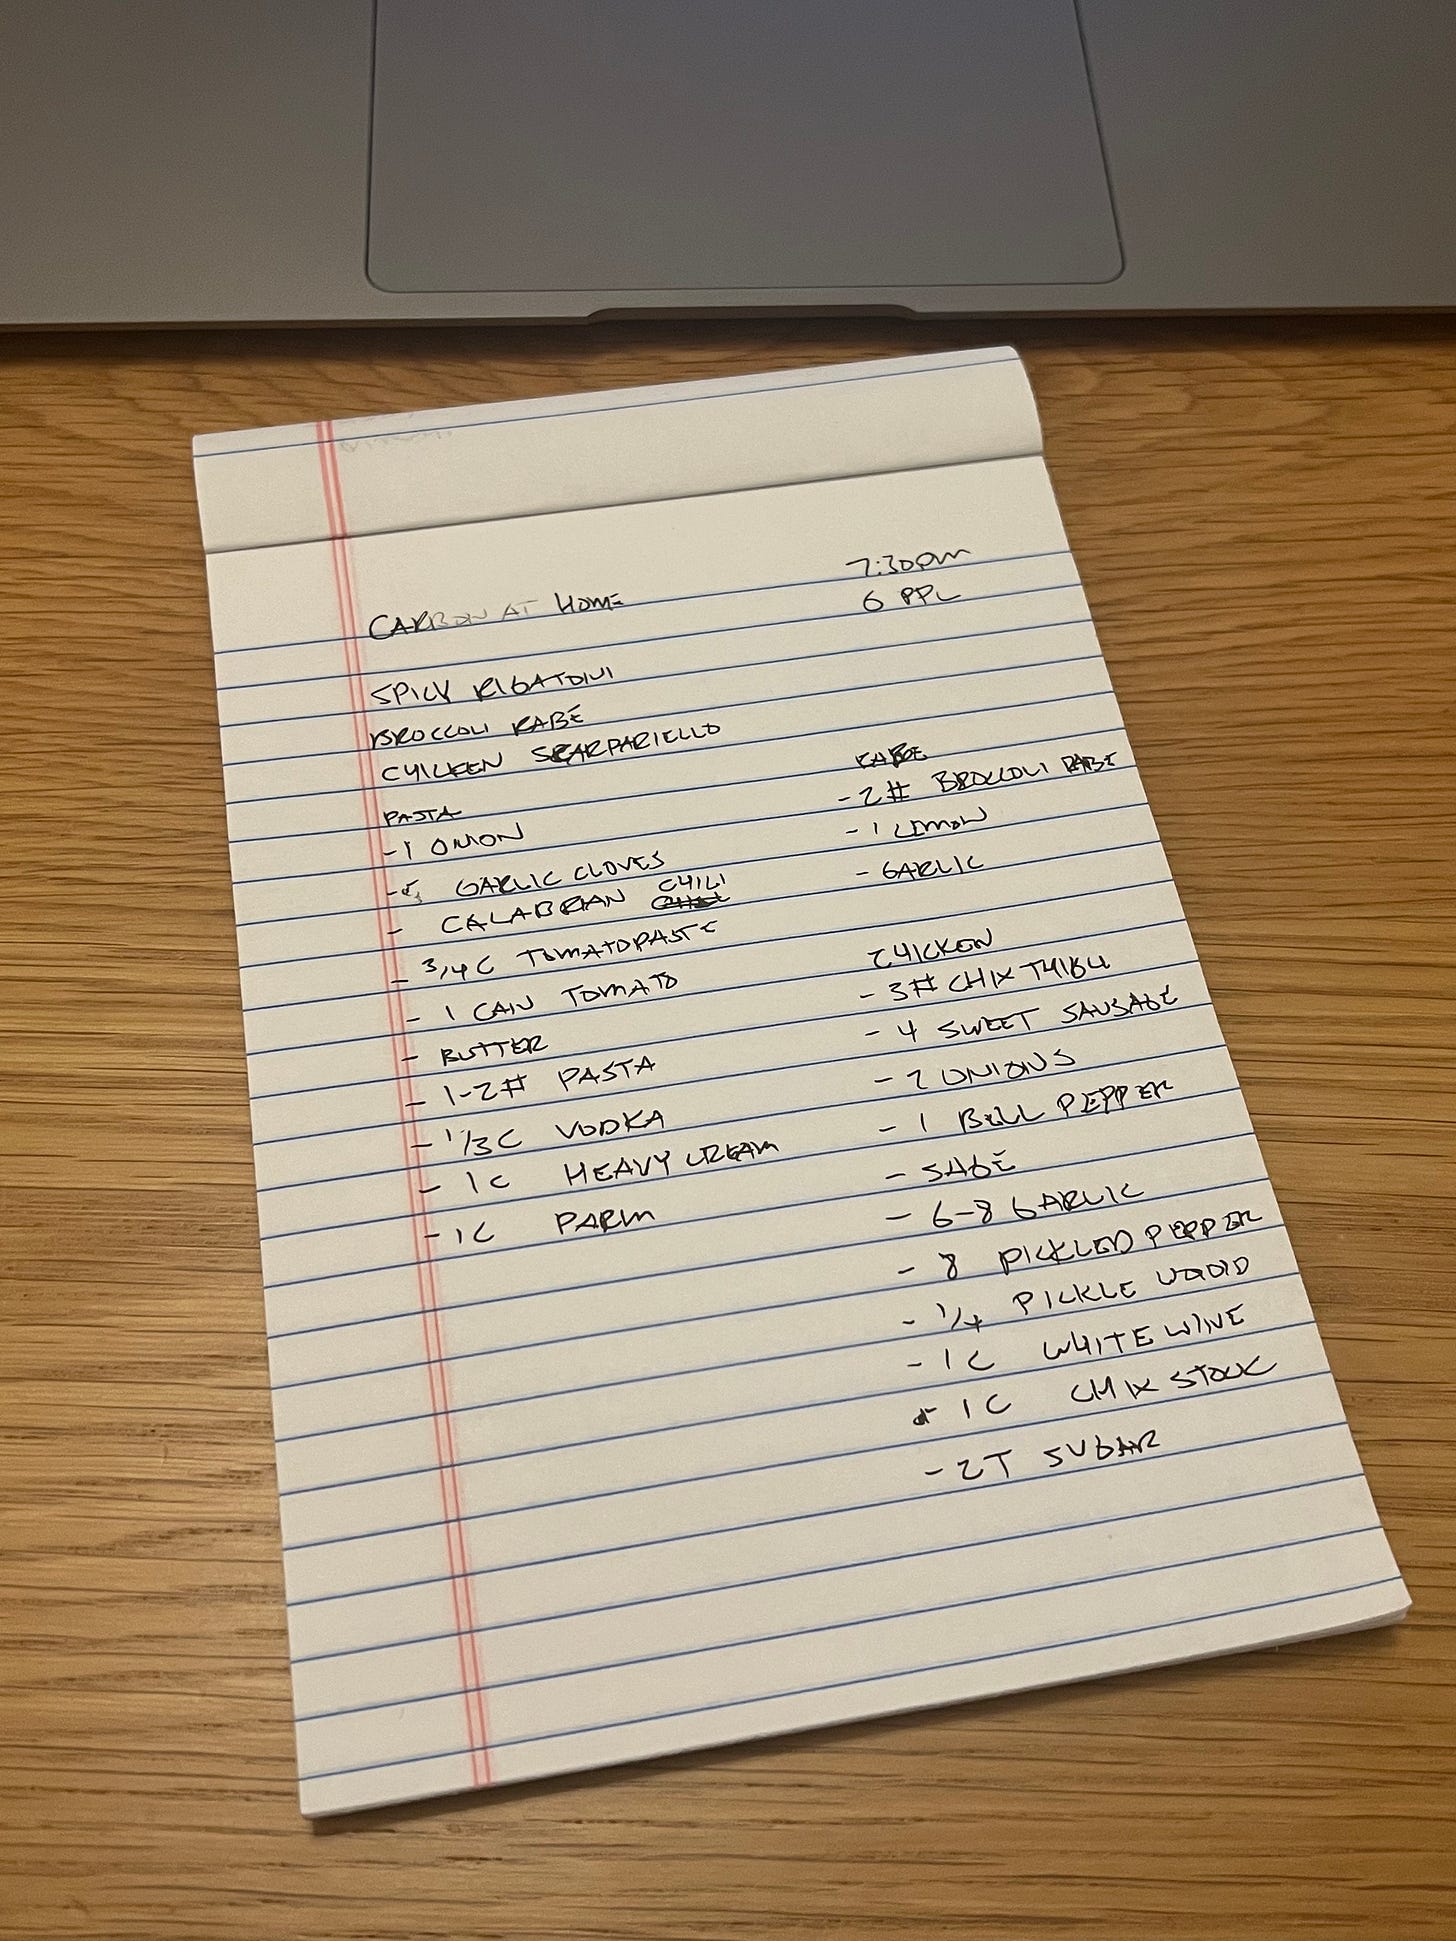 CARBON AT HOME
7:30PM
6 PPL
SPICY RIGATONI
BROCCOLI RABE
CHICKEN SCARPARIELLO
PASTA
- 1 ONION
- 5 GARLIC CLOVES
- CALABRIAN CHILI
- 3/4 C TOMATO PASTE
- 1 CAN TOMATO
- BUTTER
- 1-2# PASTA
- 1/3 C VODKA
- 1C HEAVY CREAM
- 1C PARM
RABE
- 2# BROCCOLI RABE
- 1 LEMON
- GARLIC
CHICKEN
- 3# CHIX THIGH
- 4 SWEET SAUSAGE
- 2 ONIONS
- 1 BELL PEPPER
- SAGE
- 6-8 GARLIC
- 8 PICKLED PEPPER
- 1/4 PICKLE LIQUID
- 1C WHITE WINE
- 1C CHIX STOCK
- 2T SUGAR